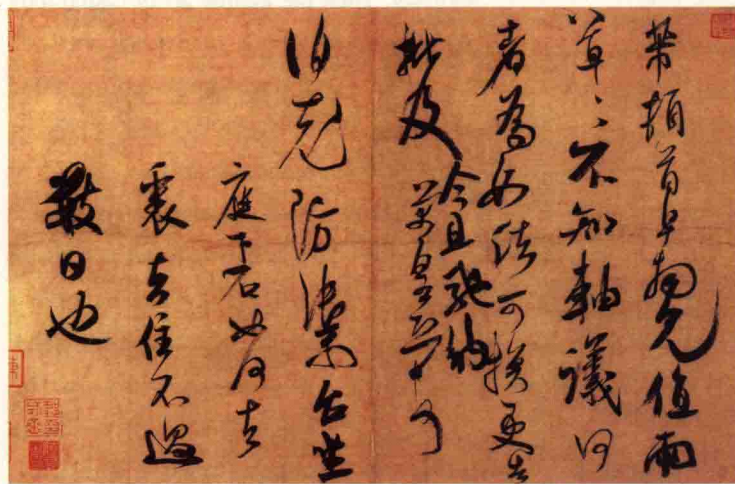 芾頓首早見值雨
草々不知軸議何
者為如法可換更告
批及
今且馳納
芾皇恐頓首
伯充防禦台坐
庭下石如何去
裹去住不過
數日也